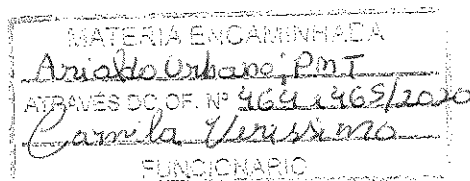 MATÉRIA ENCAMINHADA
Arialdo Urbano; PMT
ATRAVÉS DO OF. Nº 464 e 465/2020
Camila Verissimo
FUNCIONARIO